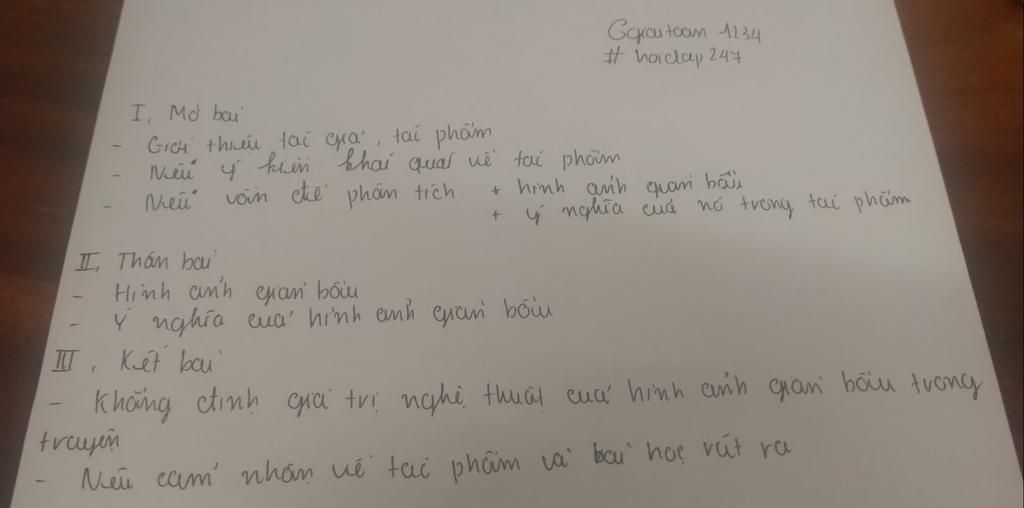 Ggiautoan 1234
# hoidap247
I, Mở bài
- Giới thiệu tác giả, tác phẩm
- Nêu ý kiến khái quát về tác phẩm
- Nêu vấn đề phân tích + hình ảnh giàn bầu
+ ý nghĩa của nó trong tác phẩm
II, Thân bài
- Hình ảnh giàn bầu
- Ý nghĩa của hình ảnh giàn bầu
III, Kết bài
- Khẳng định giá trị nghệ thuật của hình ảnh giàn bầu trong
truyện
- Nêu cảm nhận về tác phẩm và bài học rút ra